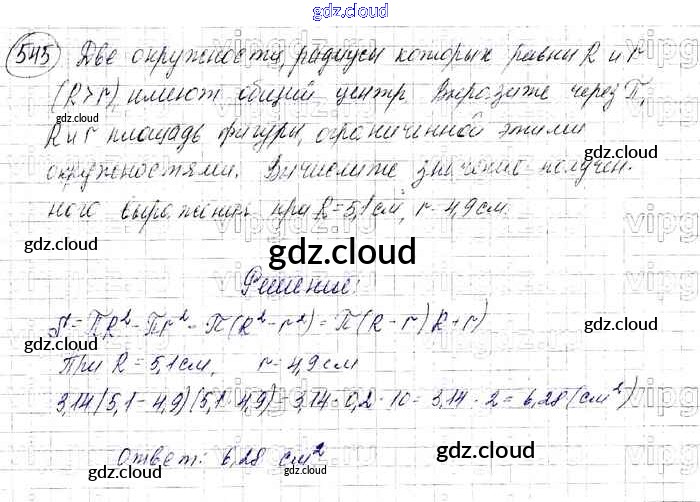 gdz.cloud
545 Две окружности, радиусы которых равны R и r
(R>r), имеют общий центр. Выразите через π,
R и r площадь фигуры, ограниченной этими
окружностями. Вычислите значение получен-
ного выражения при R=5,1см, r-4,9см.
gdz.cloud
gdz.cloud
gdz.cloud
gdz.cloud
gdz.cloud
Решение:
S=πR²-πr²=π(R²-r²)=π(R-r)(R+r)
gdz.cloud
gdz.cloud
При R=5,1см, r-4,9см
3,14(5,1-4,9)(5,1+4,9)=3,14·0,2·10=3,14·2=6,28(см²)
gdz.cloud
Ответ: 6,28 см²
gdz.cloud
gdz.cloud
gdz.cloud